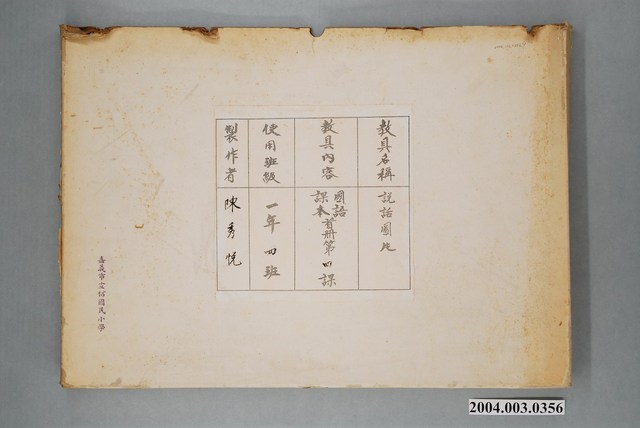 教具名稱
說話圖片
教具內容
國語
課本首册第四課
使用班級
一年四班
製作者
陳秀悅
嘉義市宣信國民小學
2004.003.0356